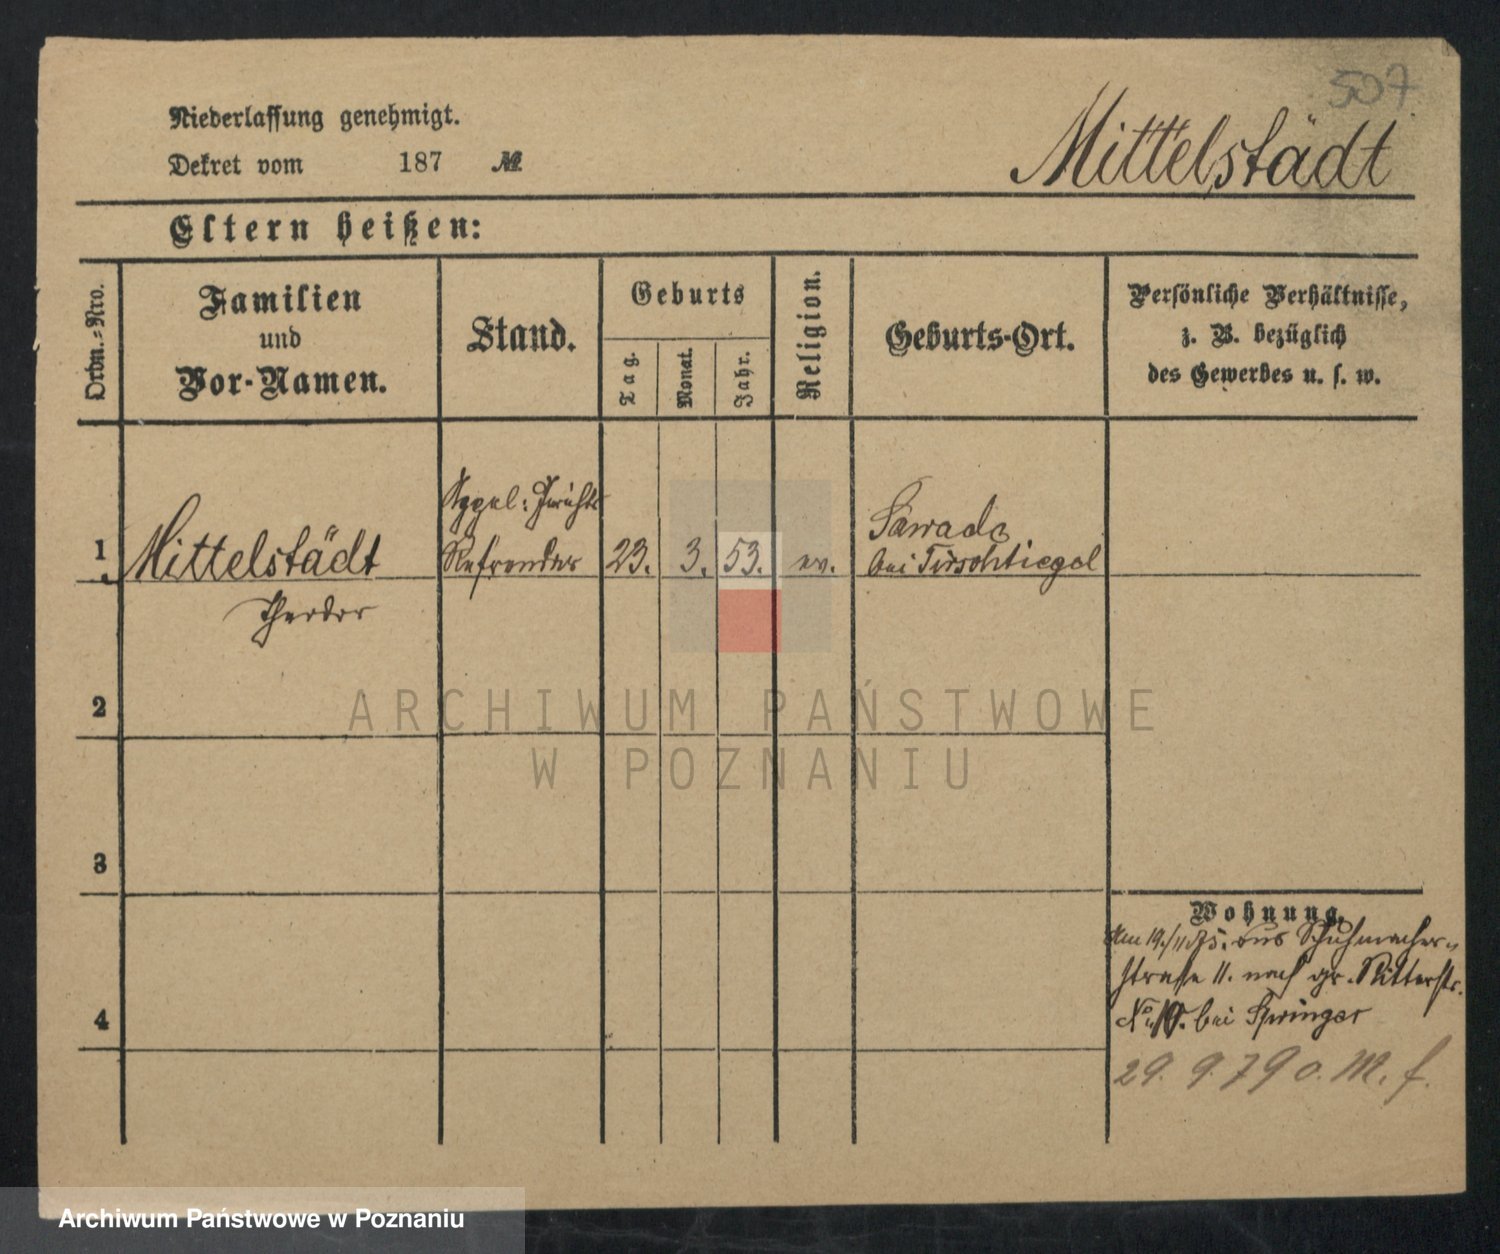 507
Niederlassung genehmigt.
Dekret vom 187 №
Mittelstädt
Eltern heißen:
Ordn.-Nro.
Familien
und
Vor-Namen.
Stand.
Geburts
Tag.
Monat.
Jahr.
Religion.
Geburts-Ort.
Persönliche Verhältnisse,
z. B. bezüglich
des Gewerbes u. s. w.
Appel: Gerichts
1 Mittelstädt Refrendar 23. 3. 53. ev. Sawade
bei Tirschtiegel
Theodor
2
3
4
Wohnung.
Am 19./11.75. aus Schuhmacher-
straße 11. nach gr. Ritterstr.
No 10. bei Springer
29. 9. 79 o. M. f.
ARCHIWUM PAŃSTWOWE
W POZNANIU
Archiwum Państwowe w Poznaniu